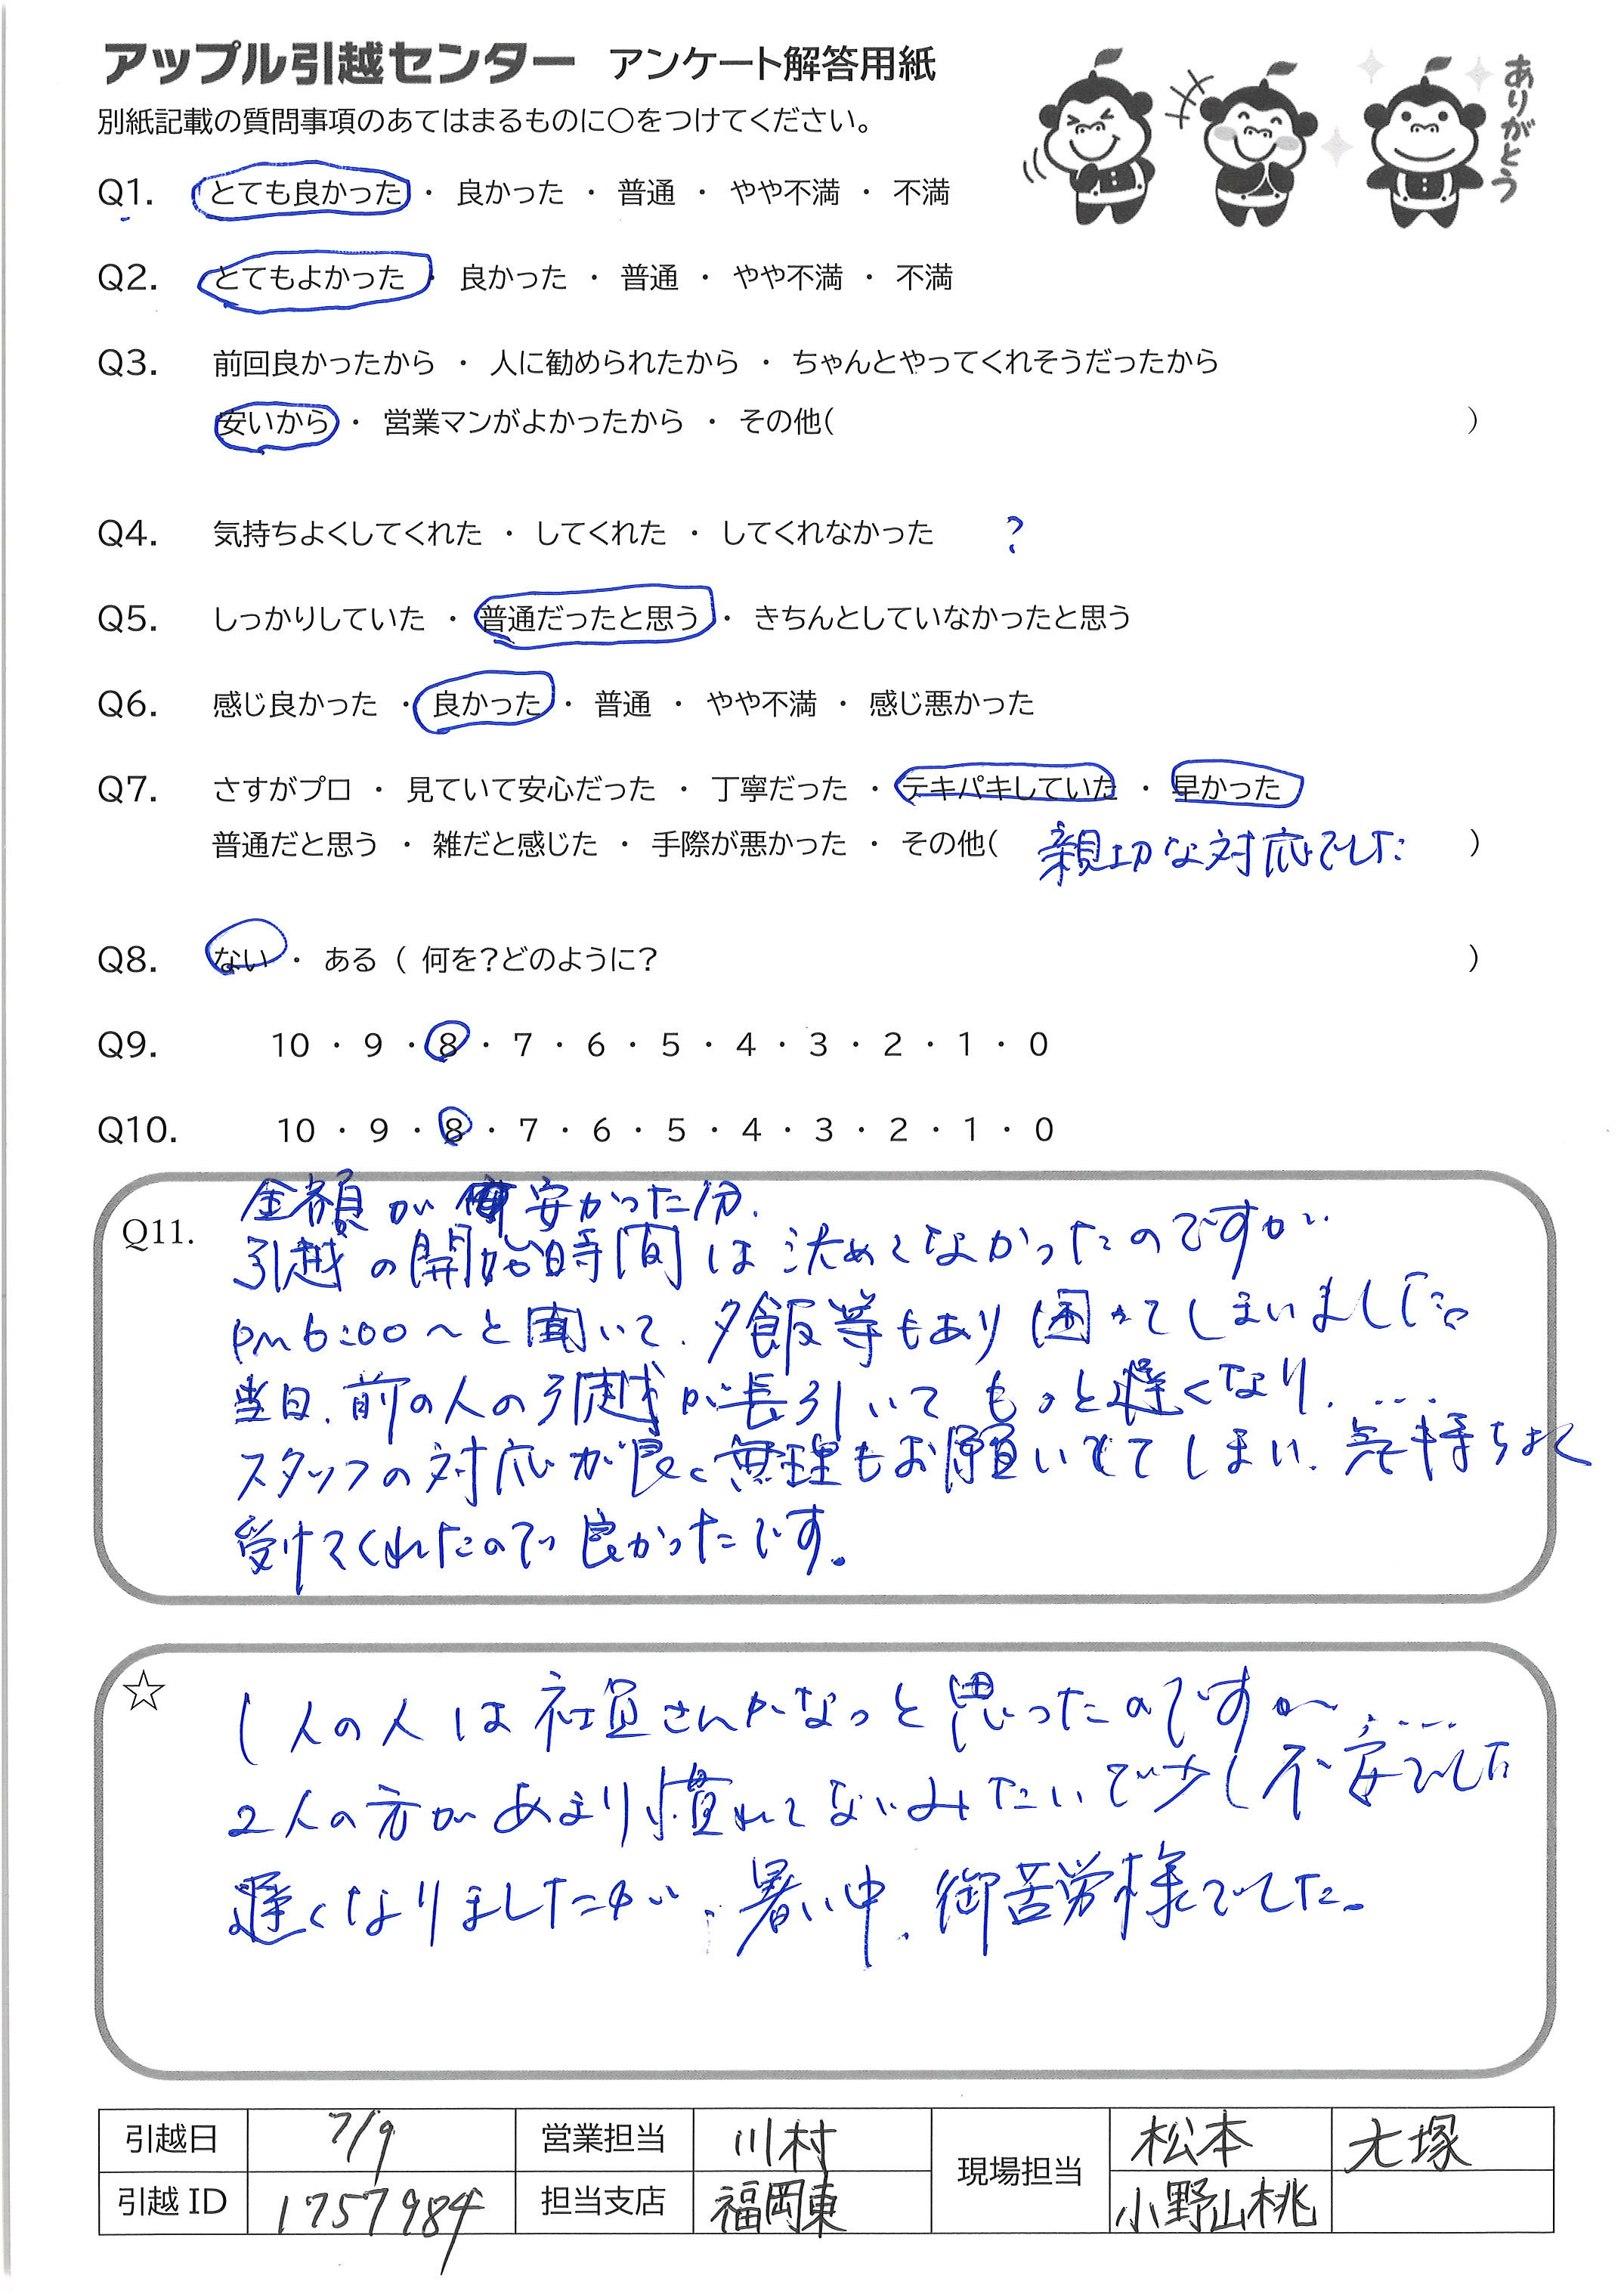 アップル引越センター アンケート解答用紙
ありがとう
別紙記載の質問事項のあてはまるものに○をつけてください。
Q1. とても良かった ・ 良かった ・ 普通 ・ やや不満 ・ 不満
Q2. とてもよかった ・ 良かった ・ 普通 ・ やや不満 ・ 不満
Q3. 前回良かったから ・ 人に勧められたから ・ ちゃんとやってくれそうだったから
安いから ・ 営業マンがよかったから ・ その他( )
Q4. 気持ちよくしてくれた ・ してくれた ・ してくれなかった ?
Q5. しっかりしていた ・ 普通だったと思う ・ きちんとしていなかったと思う
Q6. 感じ良かった ・ 良かった ・ 普通 ・ やや不満 ・ 感じ悪かった
Q7. さすがプロ ・ 見ていて安心だった ・ 丁寧だった ・ テキパキしていた ・ 早かった
普通だと思う ・ 雑だと感じた ・ 手際が悪かった ・ その他( 親切な対応でした )
Q8. ない ・ ある ( 何を?どのように? )
Q9. 10 ・ 9 ・ 8 ・ 7 ・ 6 ・ 5 ・ 4 ・ 3 ・ 2 ・ 1 ・ 0
Q10. 10 ・ 9 ・ 8 ・ 7 ・ 6 ・ 5 ・ 4 ・ 3 ・ 2 ・ 1 ・ 0
金額が 安かった分、
Q11. 引越の開始時間は決めてなかったのですが
pm6:00〜と聞いて、夕飯等もあり困ってしまいました。
当日、前の人の引越が長引いてもっと遅くなり、....
スタッフの対応が良く無理もお願いしてしまい、気持ちよく
受けてくれたので良かったです。
☆ 1人の人は社員さんかなっと思ったのですが、....
2人の方があまり慣れてないみたいで少し不安でした
遅くなりましたが、暑い中、御苦労様でした。
引越日 7/9 営業担当 川村 現場担当 松本 大塚
引越ID 1757984 担当支店 福岡東 小野山桃